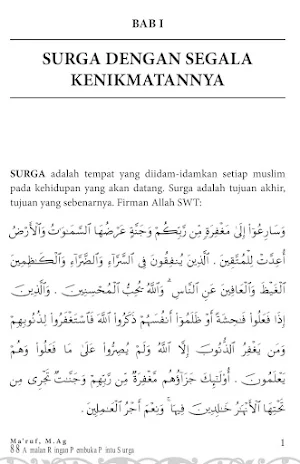 BAB I
SURGA DENGAN SEGALA
KENIKMATANNYA
SURGA adalah tempat yang diidam-idamkan setiap muslim
pada kehidupan yang akan datang. Surga adalah tujuan akhir,
tujuan yang sebenarnya. Firman Allah SWT:
وَسَارِعُوٓا۟ إِلَىٰ مَغْفِرَةٍ مِّن رَّبِّكُمْ وَجَنَّةٍ عَرْضُهَا ٱلسَّمَٰوَٰتُ وَٱلْأَرْضُ
أُعِدَّتْ لِلْمُتَّقِينَ . ٱلَّذِينَ يُنفِقُونَ فِى ٱلسَّرَّآءِ وَٱلضَّرَّآءِ وَٱلْكَٰظِمِينَ
ٱلْغَيْظَ وَٱلْعَافِينَ عَنِ ٱلنَّاسِ ۗ وَٱللَّهُ يُحِبُّ ٱلْمُحْسِنِينَ . وَٱلَّذِينَ
إِذَا فَعَلُوا۟ فَٰحِشَةً أَوْ ظَلَمُوٓا۟ أَنفُسَهُمْ ذَكَرُوا۟ ٱللَّهَ فَٱسْتَغْفَرُوا۟ لِذُنُوبِهِمْ
وَمَن يَغْفِرُ ٱلذُّنُوبَ إِلَّا ٱللَّهُ وَلَمْ يُصِرُّوا۟ عَلَىٰ مَا فَعَلُوا۟ وَهُمْ
يَعْلَمُونَ . أُو۟لَٰٓئِكَ جَزَآؤُهُم مَّغْفِرَةٌ مِّن رَّبِّهِمْ وَجَنَّٰتٌ تَجْرِى مِن
تَحْتِهَا ٱلْأَنْهَٰرُ خَٰلِدِينَ فِيهَا ۚ وَنِعْمَ أَجْرُ ٱلْعَٰمِلِينَ .
Ma'ruf, M.Ag
88 Amalan Ringan Pembuka Pintu Surga
1